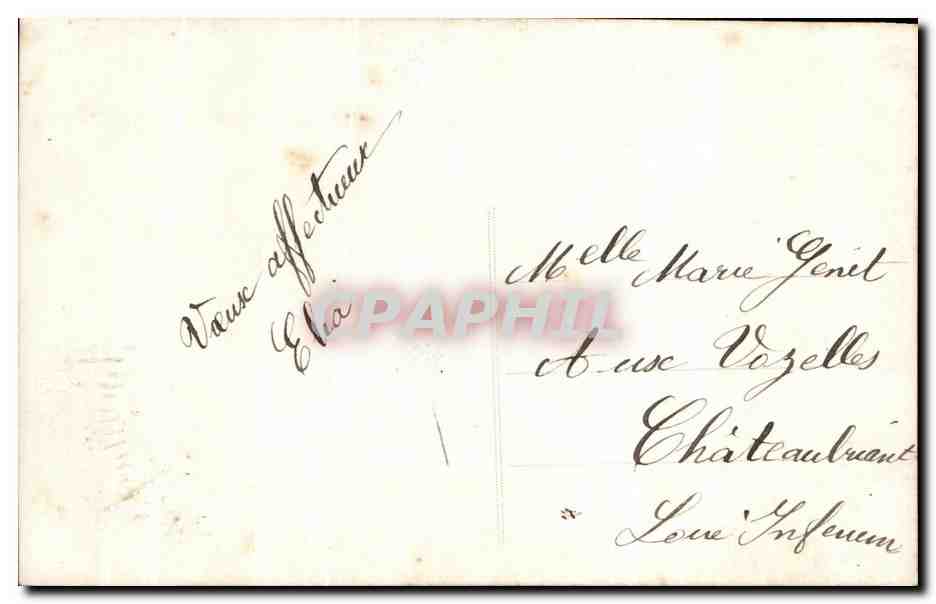 Vœux affectueux
Elia
CPAPHIL
Melle Marie Génet
Aux Vozelles
Châteaubriant
Loire Inférieure